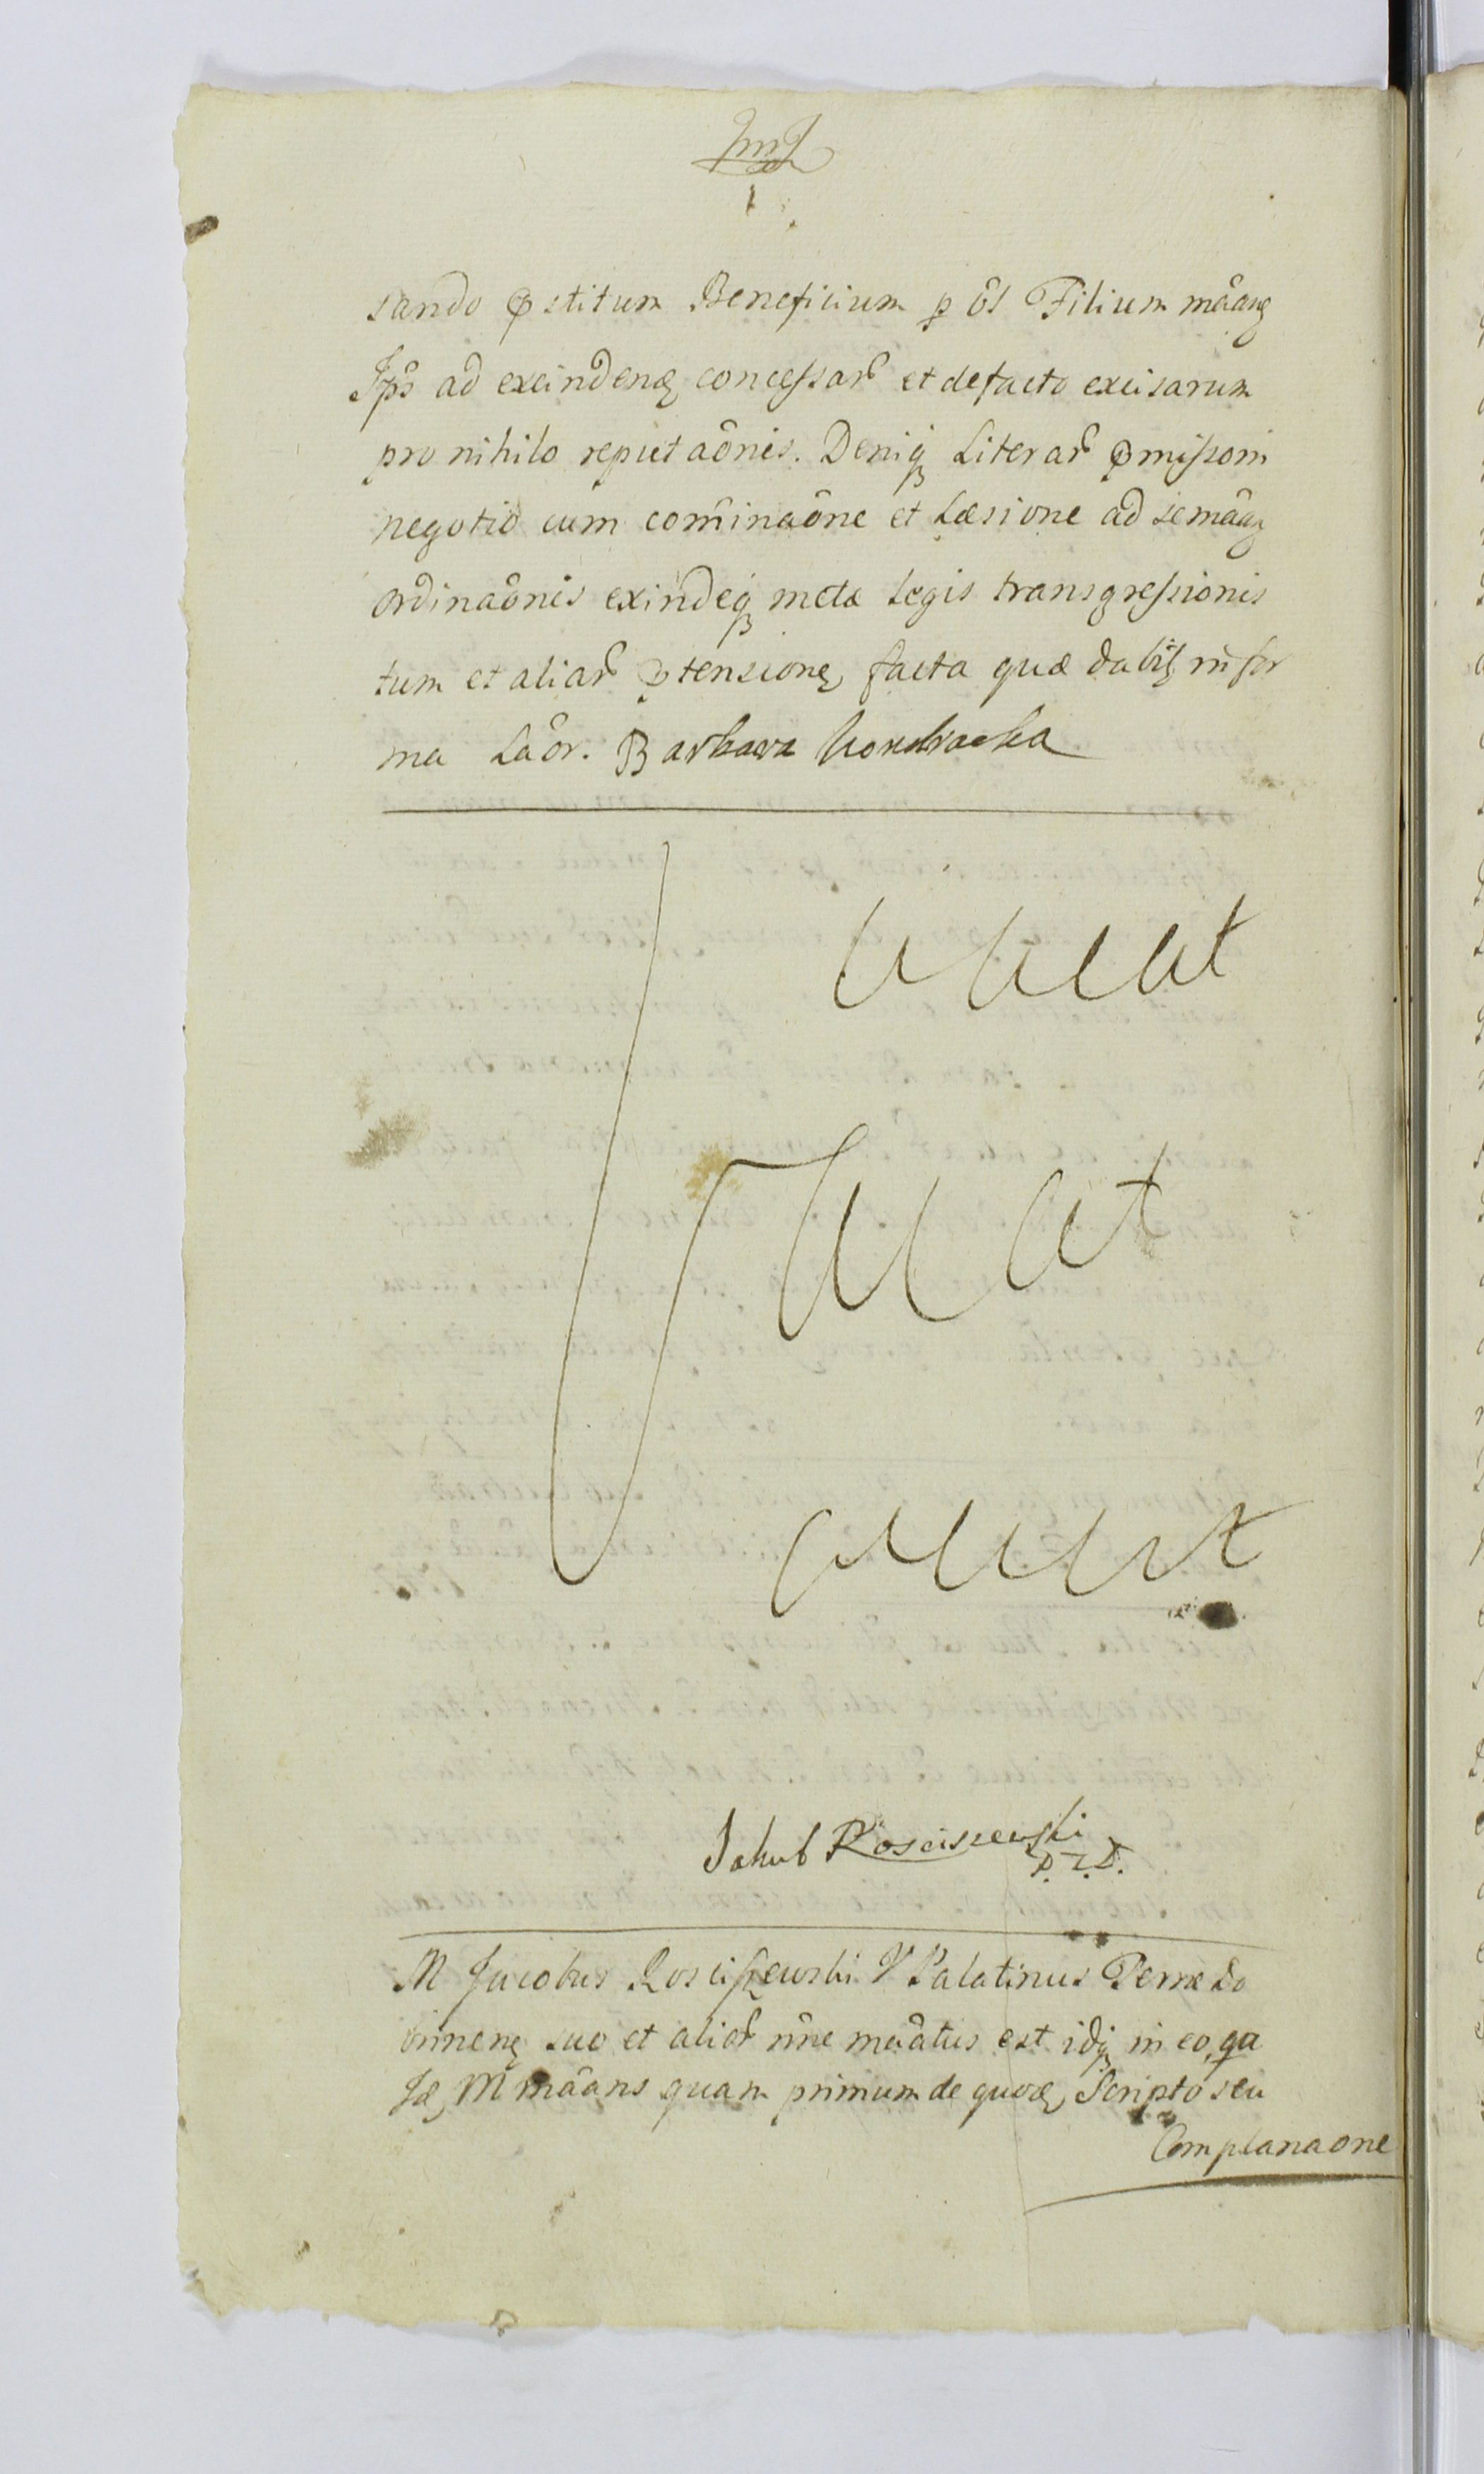 sando ꝓstitum Beneficium p os Filium mãang
Jps ad exindeng concessar et defacto excisarum
pro nihilo reputaõnis. Deniq Literar pmissom
negotio cum cominaõne et Læsione ad semãang
ordinaõnis exindeq metæ Legis transgressionis
tum et aliar ptensioneg facta quæ dabit in for
ma Laõr. Barbara Kondracka
Vacat
Vacat
Vacat
Jakub Rosciszewski
P. Z. D.
M Jacobus Rosciszewski V Palatinus Terræ Do
brinen suo et alior nñe mãatus est idq in eo, qa
Jd M mãans quam primum de quoq Scripto seu
Complanaone